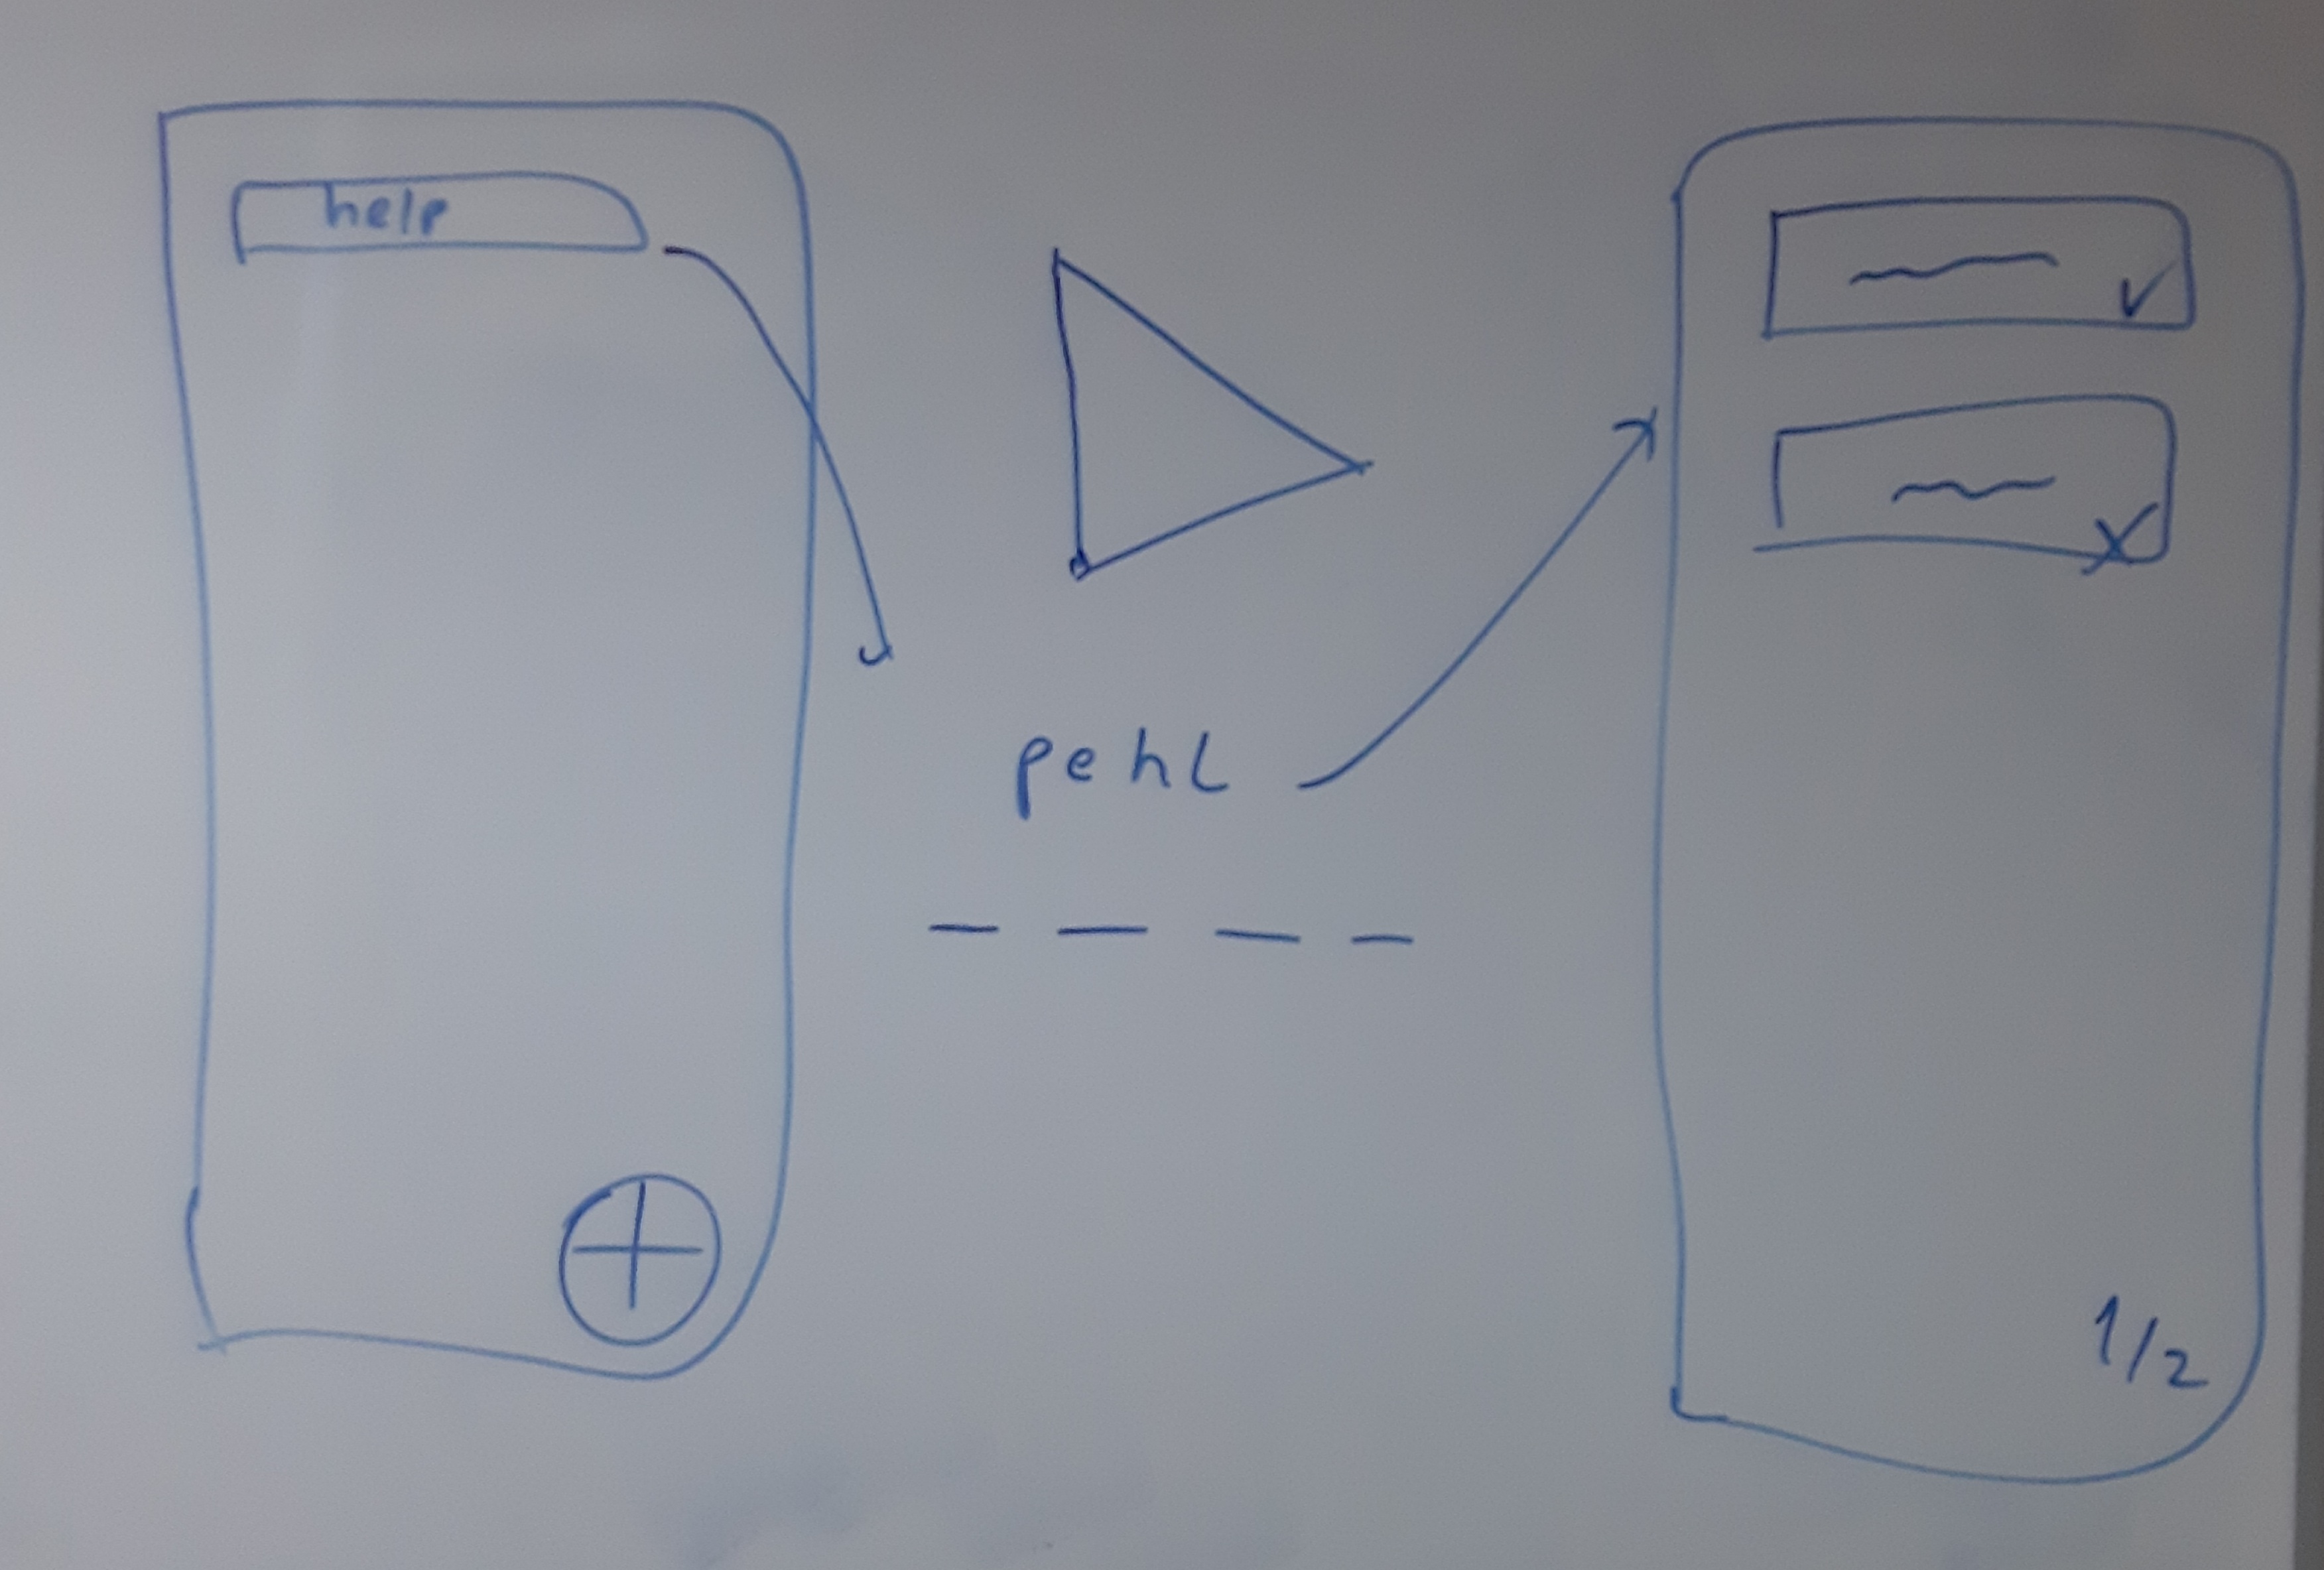 help
pehL
1/2